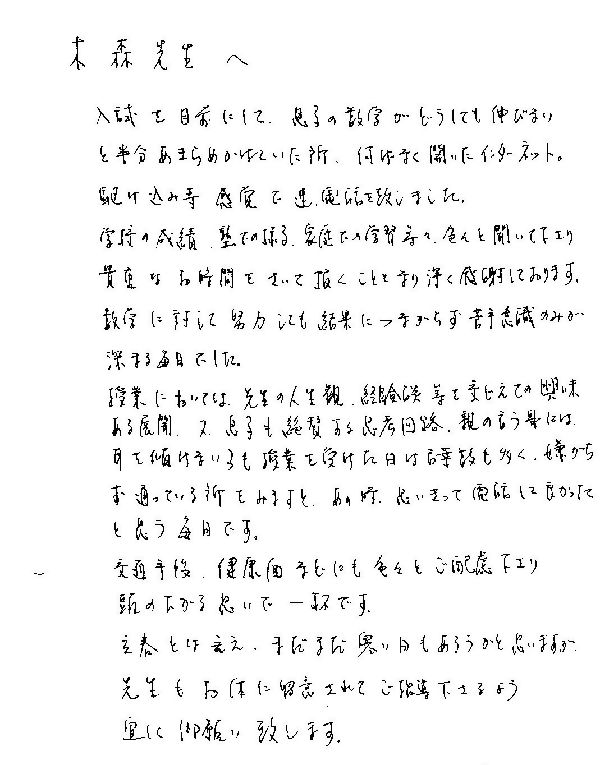 木森先生へ
入試を目前にして、息子の数学がどうしても伸びない
と半分あきらめかけていた所、何げなく開いたインターネット。
駆け込み寺感覚で速電話を致しました。
学校の成績、塾での様子、家庭での学習等々、色々と聞いて下さり
貴重なお時間をさいて頂くこととなり深く感謝しております。
数学に対して努力しても結果につながらず苦手意識のみが
深まる毎日でした。
授業においては、先生の人生観、経験談等を交じえての興味
ある展開、又、息子も絶賛する思考回路、親の言う事には
耳を傾けない子も授業を受けた日は口数も多く、嫌がら
ず通っている所をみますと、あの時、思いきって電話して良かった
と思う毎日です。
交通手段、健康面などにも色々とご配慮下さり
頭の下がる思いで一杯です。
立春とは言え、まだまだ寒い日もあろうかと思いますが
先生もお体に留意されてご指導下さるよう
宜しく御願い致します。